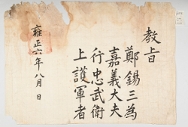 教旨
鄭錫三為
嘉義大夫
行忠武衛
上護軍者
雍正六年八月 日